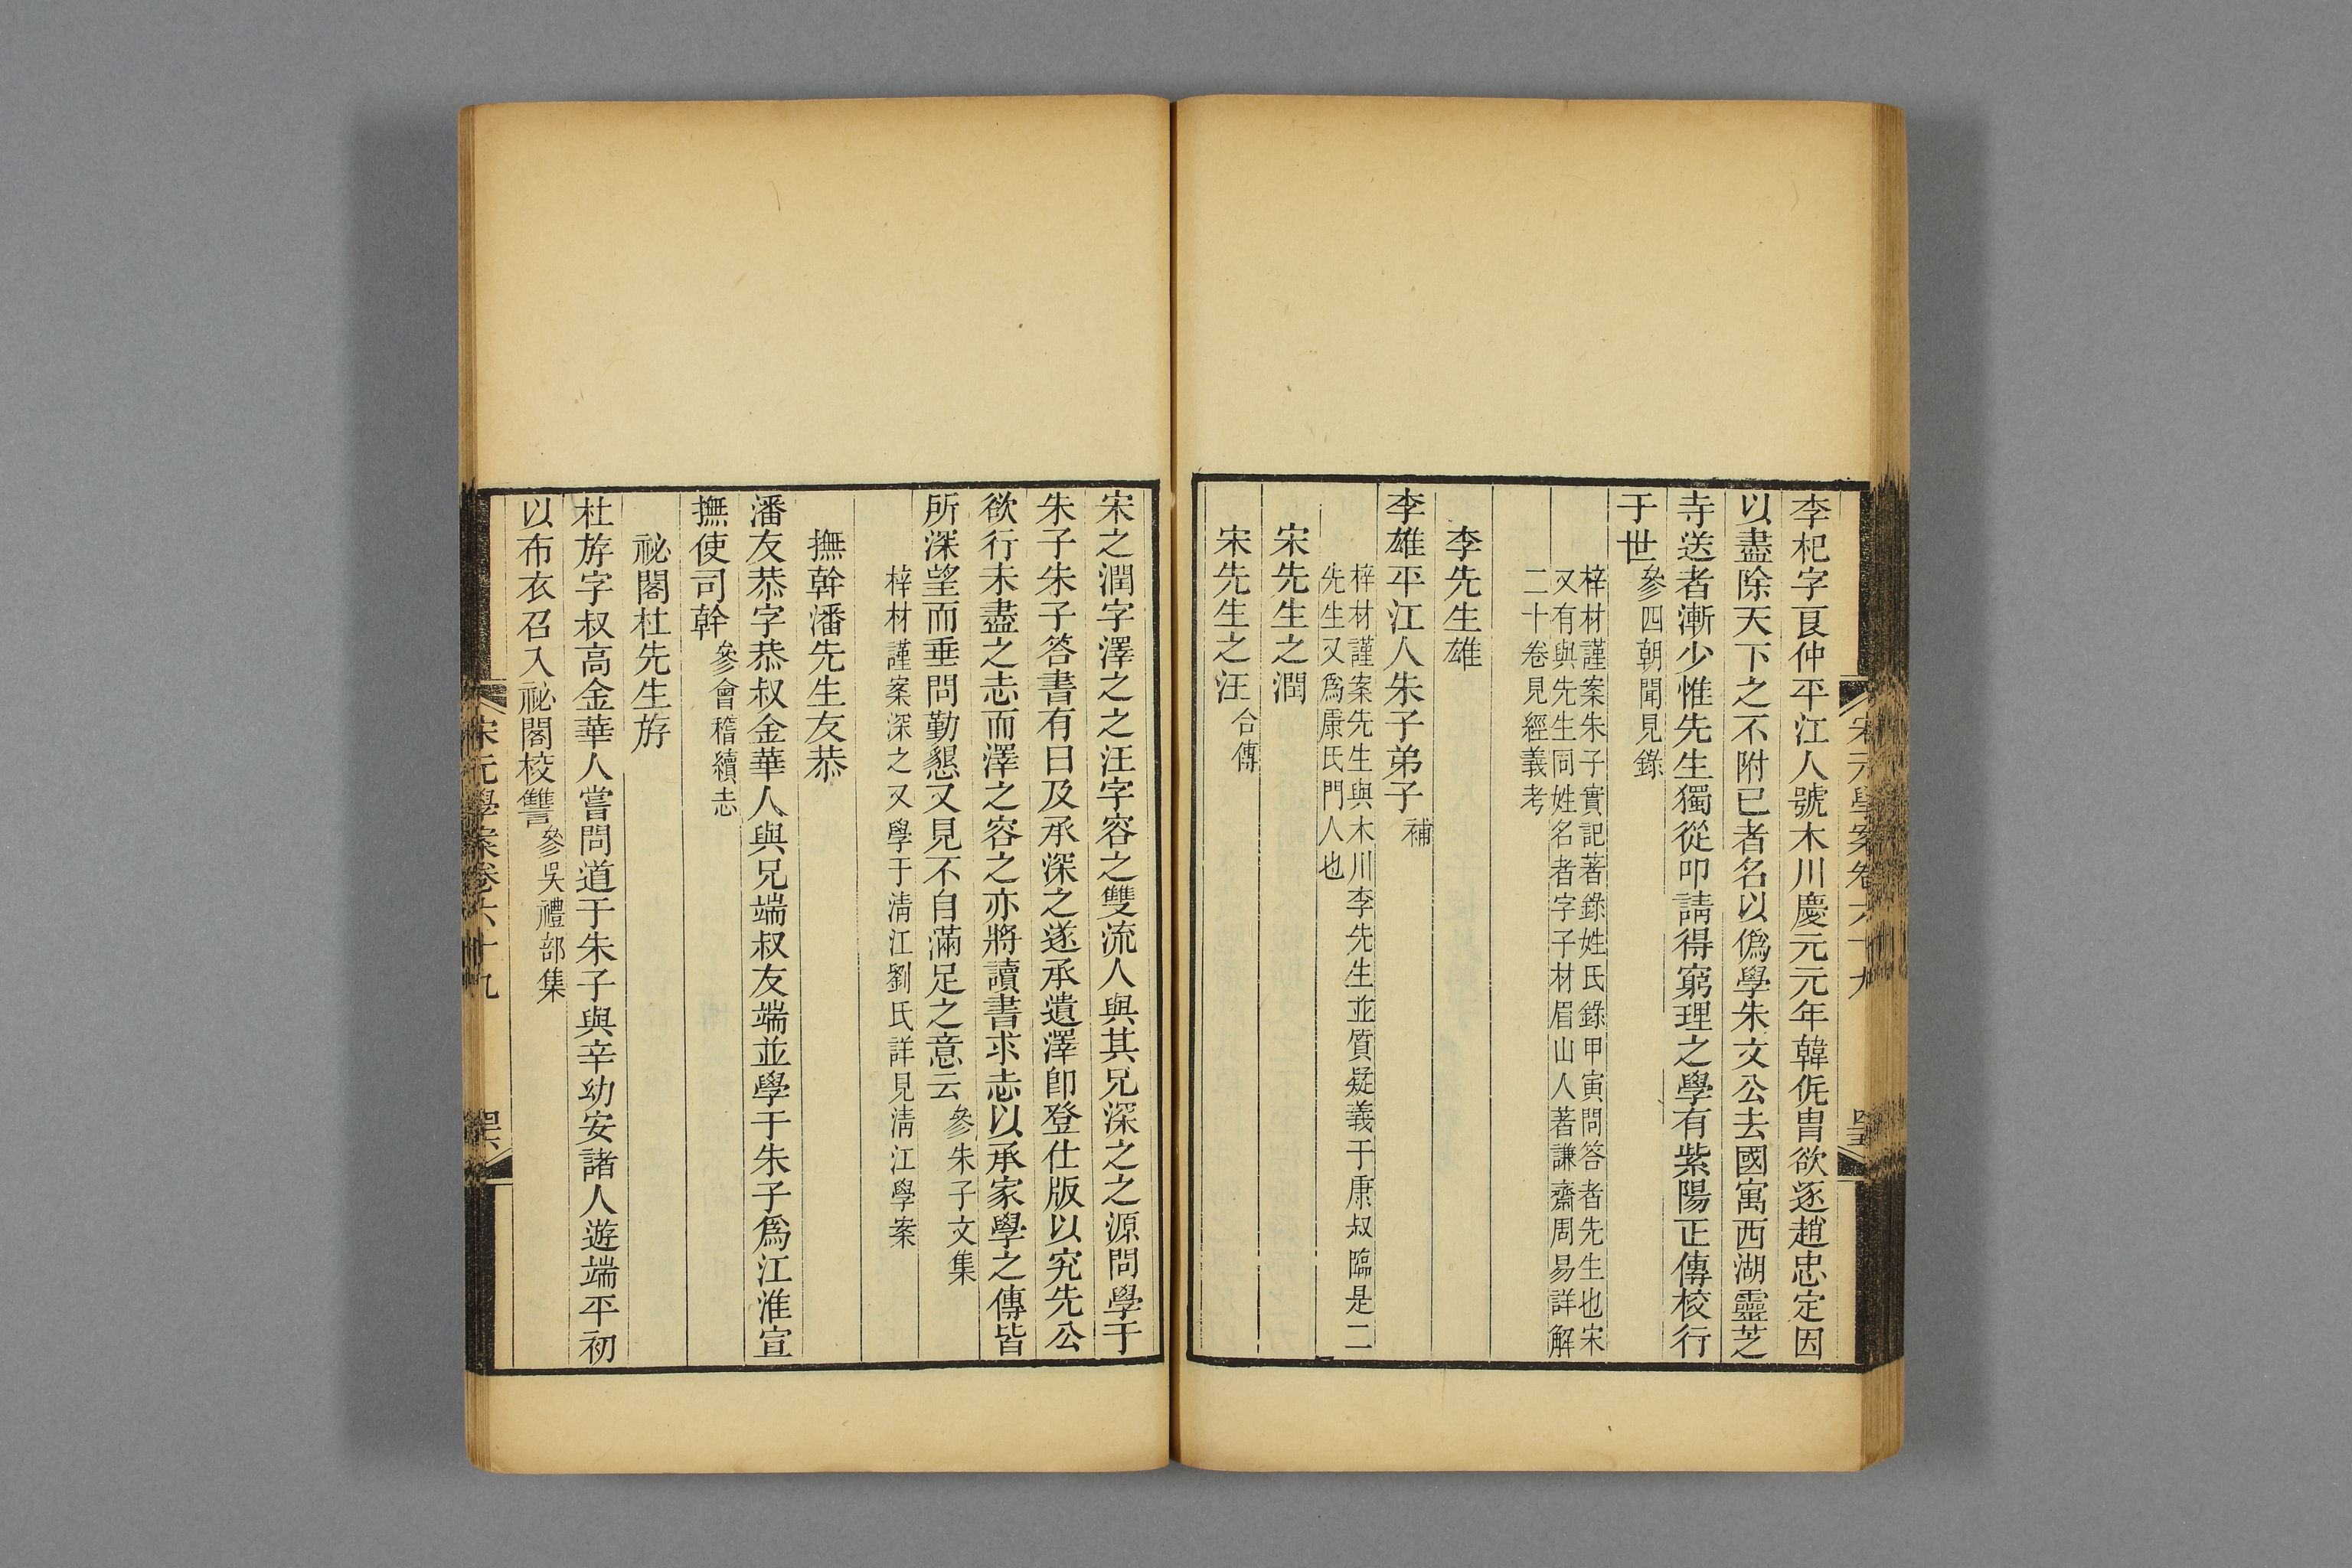 李杞字良仲平江人號木川慶元元年韓侂胄欲逐趙忠定因
以盡除天下之不附已者名以僞學朱文公去國寓西湖靈芝
寺送者漸少惟先生獨從叩請得窮理之學有紫陽正傳校行
于世參四朝聞見錄
梓材謹案朱子實記著錄姓氏錄甲寅問答者先生也宋
又有與先生同姓名者字子材眉山人著謙齋周易詳解
二十卷見經義考
李先生雄
李雄平江人朱子弟子補
梓材謹案先生與木川李先生並質疑義于康叔臨是二
先生又爲康氏門人也
宋先生之潤
宋先生之汪合傳
宋元學案卷六十九
宋之潤字澤之之汪字容之雙流人與其兄深之之源問學于
朱子朱子答書有曰及承深之遂承遺澤卽登仕版以究先公
欲行未盡之志而澤之容之亦將讀書求志以承家學之傳皆
所深望而垂問勤懇又見不自滿足之意云參朱子文集
梓材謹案深之又學于淸江劉氏詳見淸江學案
撫幹潘先生友恭
潘友恭字恭叔金華人與兄端叔友端並學于朱子爲江淮宣
撫使司幹參會稽續志
祕閣杜先生斿
杜斿字叔高金華人嘗問道于朱子與辛幼安諸人遊端平初
以布衣召入祕閣校讐參吳禮部集
宋元學案卷六十九